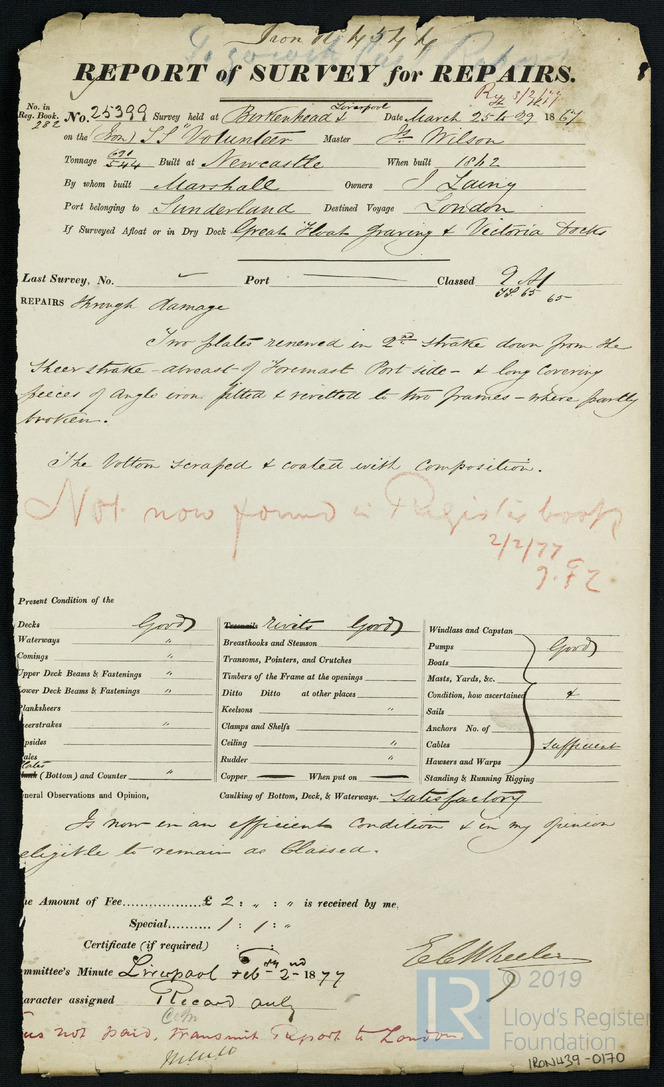 Iron
REPORT of SURVEY for REPAIRS.
3/2/77
No. in
Reg. Book.
282
No. 25399 Survey held at Birkenhead & Liverpool Date March 25 & 29 1867
on the (Iron) SS "Volunteer Master Js Wilson
Tonnage 691 544 Built at Newcastle When built 1862
By whom built Marshall Owners J Laing
Port belonging to Sunderland Destined Voyage London
If Surveyed Afloat or in Dry Dock Great Float Graving & Victoria Docks
Last Survey, No. Port Classed 9 A1
SS 65 65
REPAIRS through damage
Two plates renewed in 2nd strake down from the
Sheerstrake - abreast of Foremast Port side - & long covering
pieces of Angle iron fitted & rivetted to two frames - where partly
broken.
The Bottom scraped & coated with Composition.
Not now found in Register book
2/2/77
Present Condition of the
Decks Good
Waterways "
Comings "
Upper Deck Beams & Fastenings "
Lower Deck Beams & Fastenings "
Planksheers
Sheerstrakes "
Topsides
Wales
Plates (Bottom) and Counter "
Treenails Rivets Good
Breasthooks and Stemson
Transoms, Pointers, and Crutches
Timbers of the Frame at the openings
Ditto Ditto at other places
Keelsons "
Clamps and Shelfs
Ceiling "
Rudder "
Copper — When put on —
Windlass and Capstan
Pumps Good
Boats
Masts, Yards, &c.
Condition, how ascertained &
Sails
Anchors No. of
Cables sufficient
Hawsers and Warps
Standing & Running Rigging
General Observations and Opinion, Caulking of Bottom, Deck, & Waterways. Satisfactory
Is now in an efficient condition & in my opinion
eligible to remain as Classed.
The Amount of Fee £ 2 : " : " is received by me,
Special 1 : 1 : "
Certificate (if required) : :
E C Wheeler
Committee's Minute Liverpool Feby 2nd 1877
Character assigned Record only
Fees not paid, transmit Report to London.
© 2019
LR
Lloyd's Register
Foundation
IRON439-0170